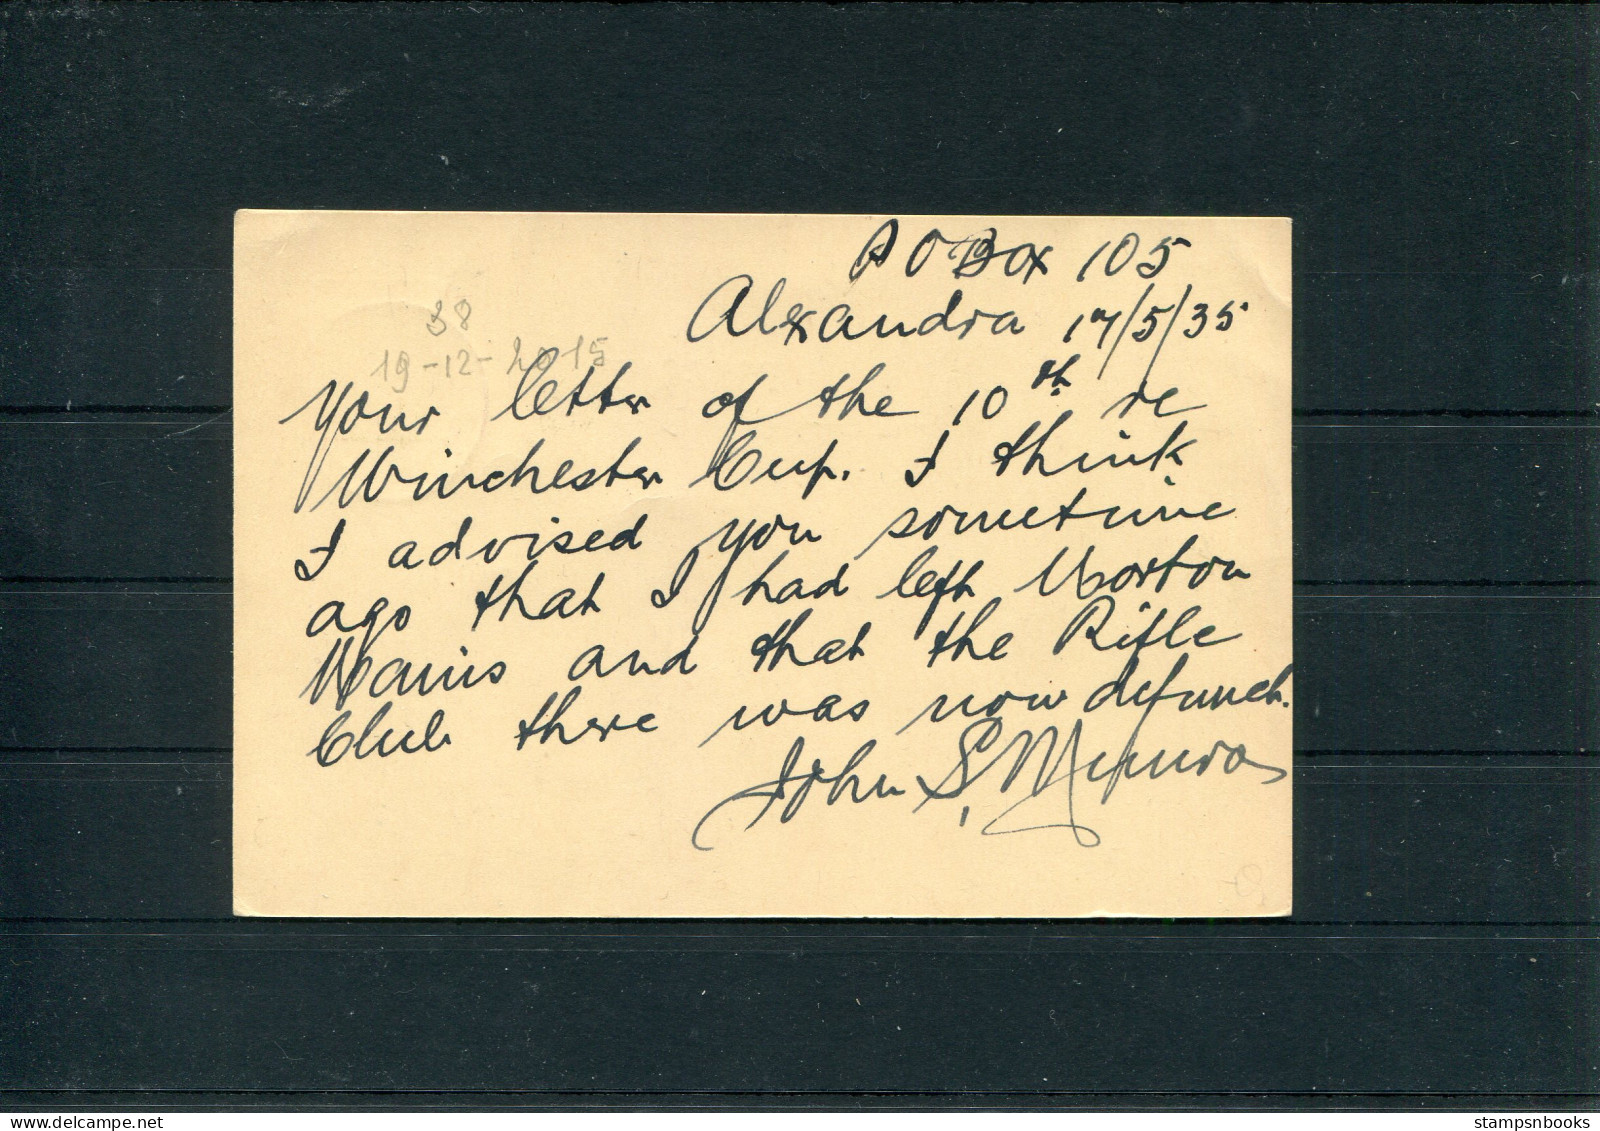 PO Box 105
Alexandra 17/5/35
38
19-12-2015
Your letter of the 10th re
Winchester Cup. I think
I advised you sometime
ago that I had left Morton
Mains and that the Rifle
Club there was now defunct.
John S. Munro
stampsnbooks